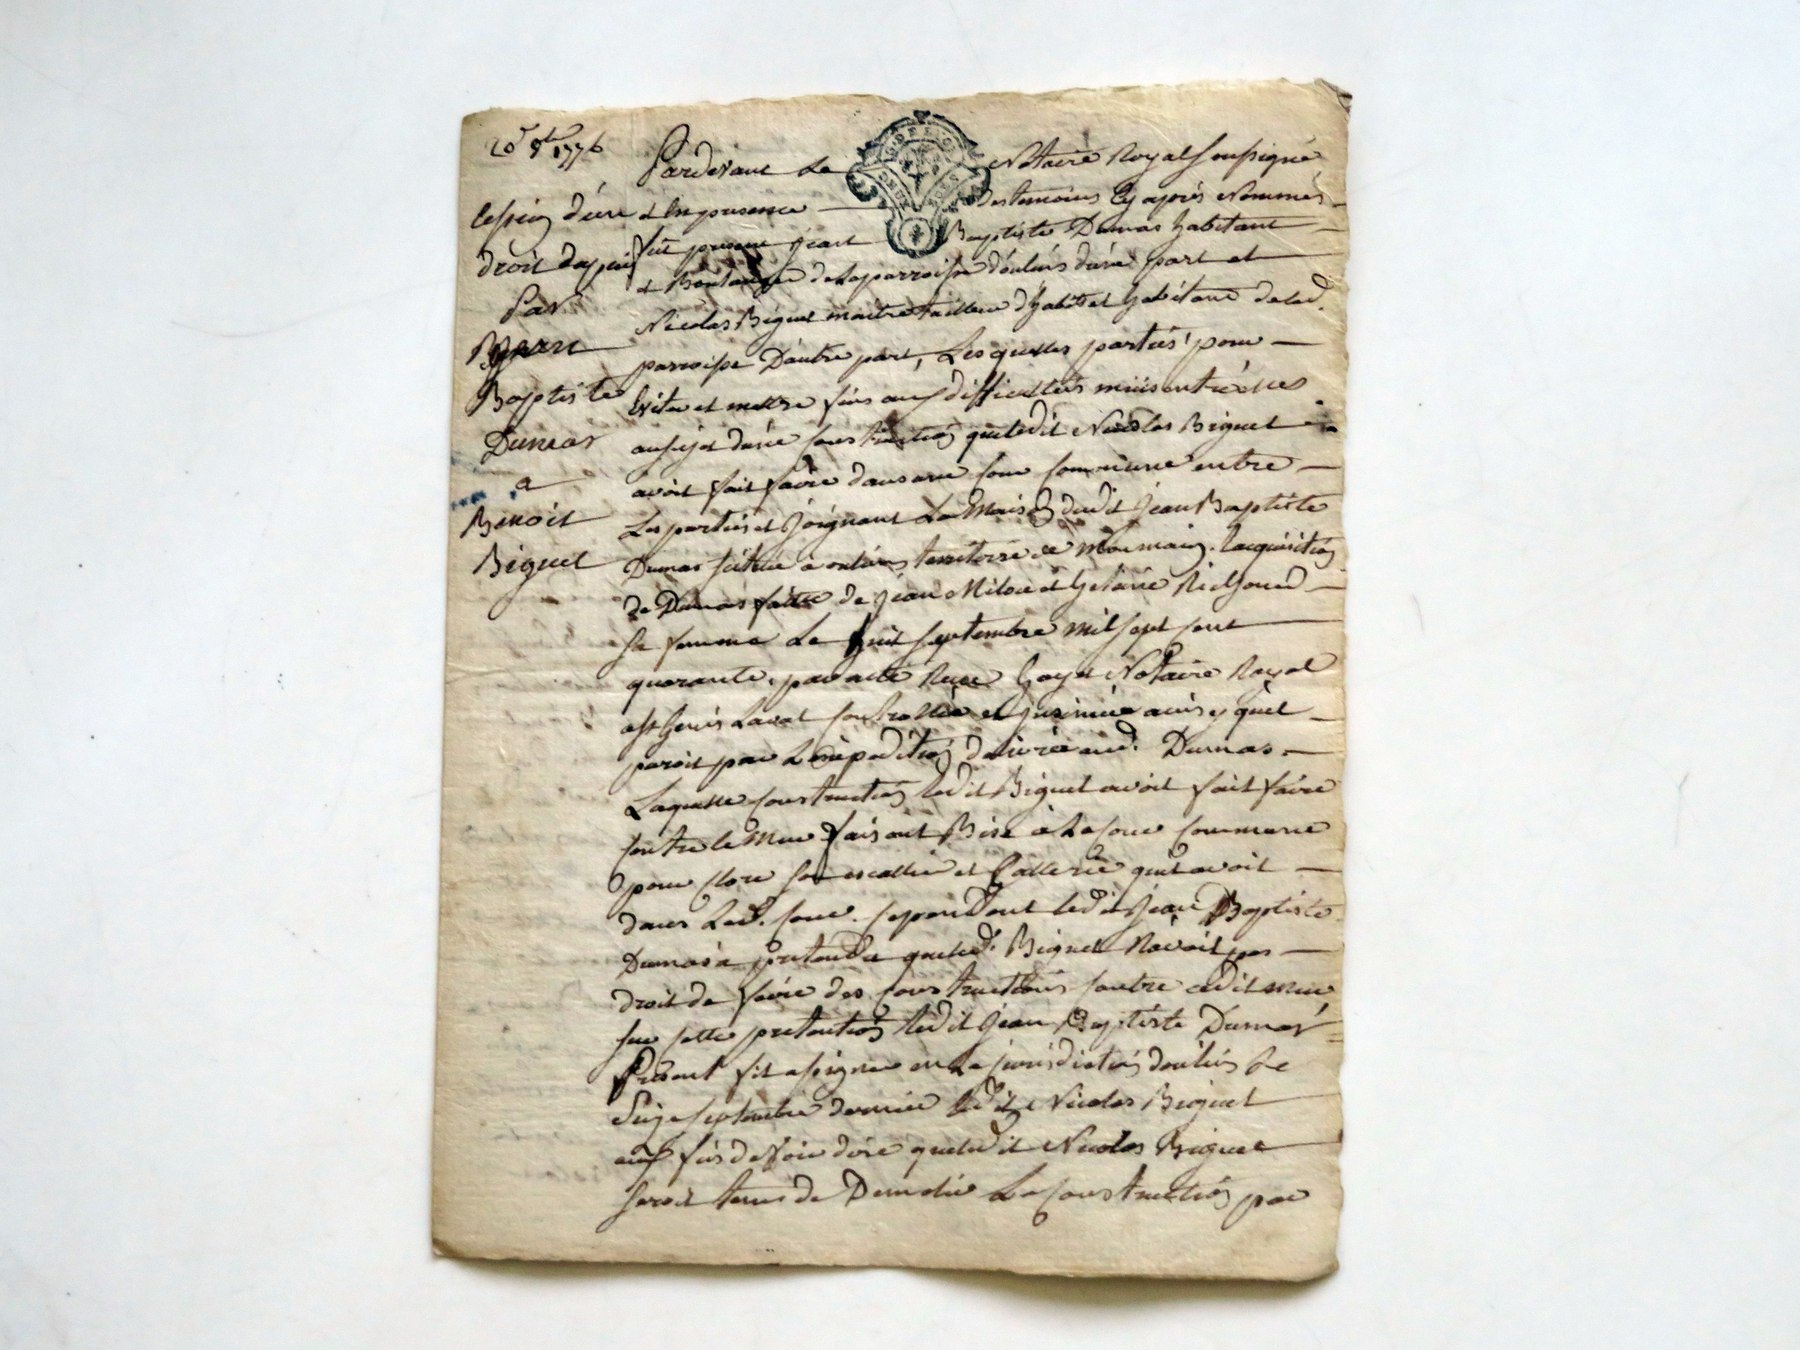 10 8bre 1776
Cession d'un
droit dapuis
Par
Jean
Baptiste
Dumas
a
Benoit
Biguet
G DE LYON
DEUX SOLS
Pardevant Le Notaire Royal soussigné
et En presence des temoins Cy après Nommés
fut present Jean Baptiste Dumas habitant
et Boulanger de La parroisse d'oulins d'une part et
Nicolas Biguet maitre tailleur d'habits et habitant de lad.
parroisse D'autre part, Lesquelles parties pour
Eviter et mettre fins aux difficultés muis entre elles
au sujet d'une construction que ledit Nicolas Biguet
avoit fait faire dans une Cour Commune entre
Les parties et Joignant La Maison dudit Jean Baptiste
Dumas scituée à oulins territoire de Montmain. L'acquisition
de Dumas faitte de Jean Milou et
sa femme Le huit septembre mil sept cent
quarante, par acte Recu Goyet Notaire Royal
a St Genis Laval Controllée et Jnsinuée ainsy quil
paroit par L'expedition delivrée aud. Dumas
Laquelle construction ledit Biguet avoit fait faire
contre le Mur faisant Bise à La Cour Commune
pour clore son escallier et Gallerie quil avoit
dans Lad. Cour. Cependant ledit Jean Baptiste
Dumas a pretendu que led. Biguet N'avoit pas
droit de faire des constructions contre cedit mur
sur cette pretention ledit Jean Baptiste Dumas
Present fit assigner en La jurisdiction d'oulins Le
Seize septembre dernier ledit Nicolas Biguet
aux fins de voir dire que ledit Nicolas Biguet
seroit tenu de Demolir La Construction par